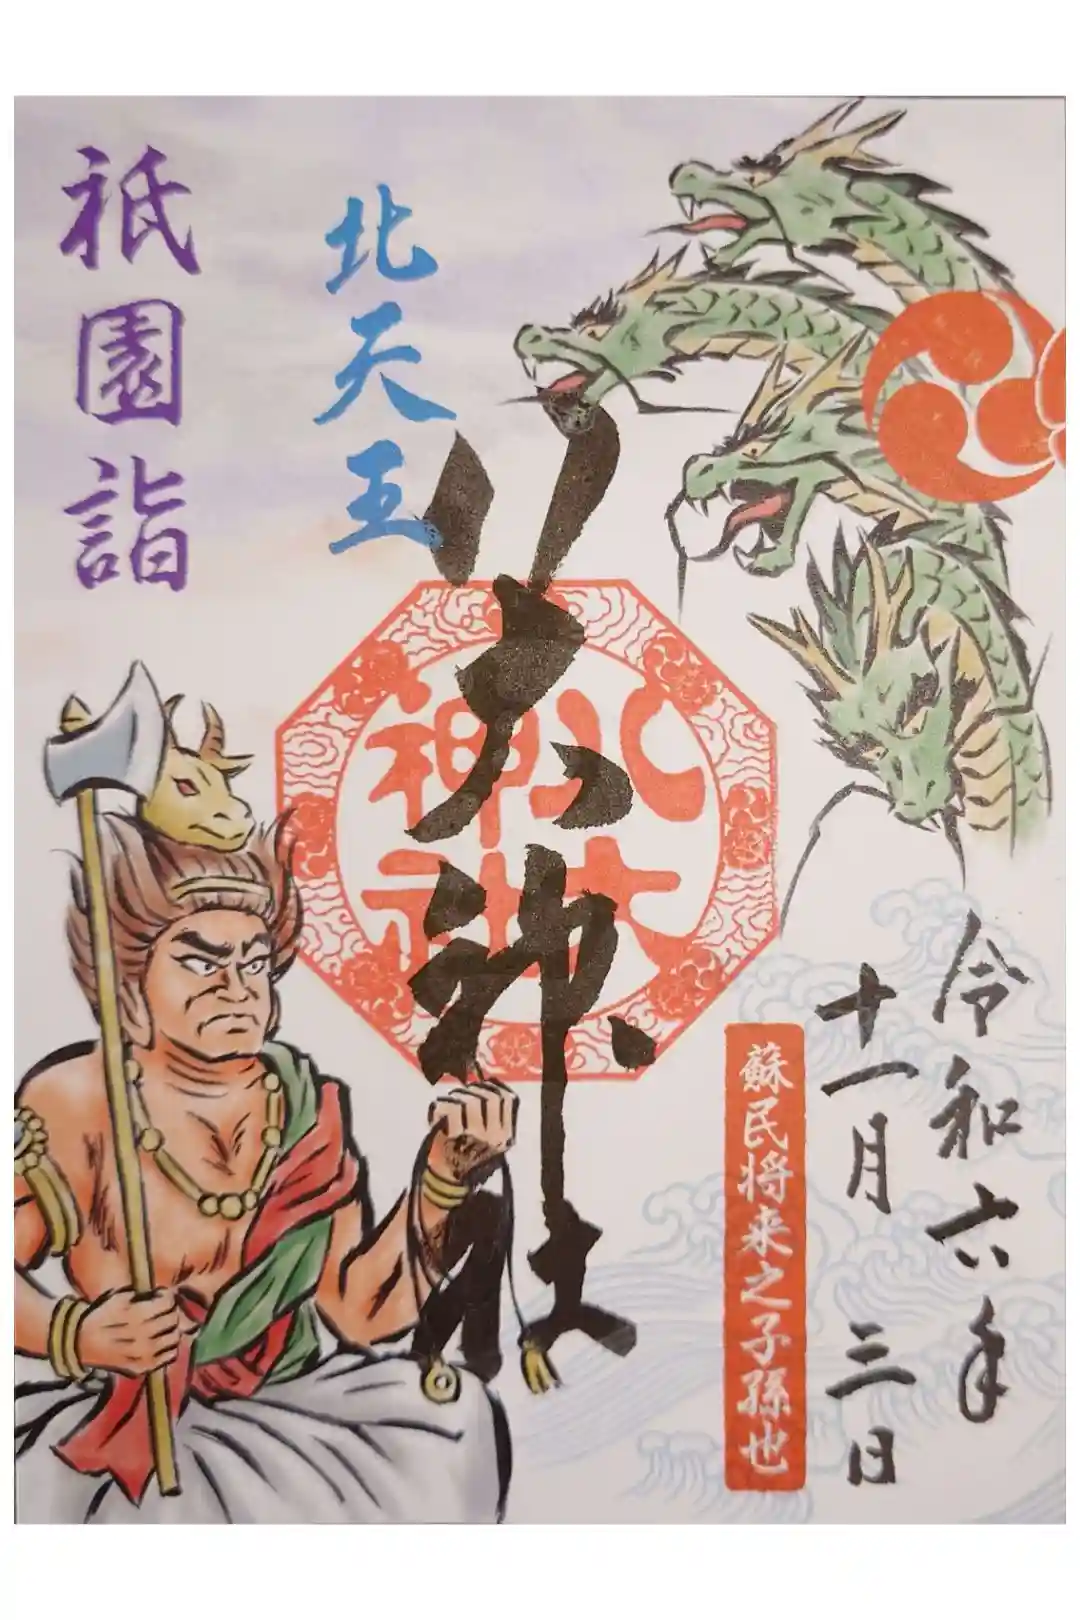 令和六年
十一月三日
蘇民将来之子孫也
八大神社
八大
神社
北天王
祇園詣